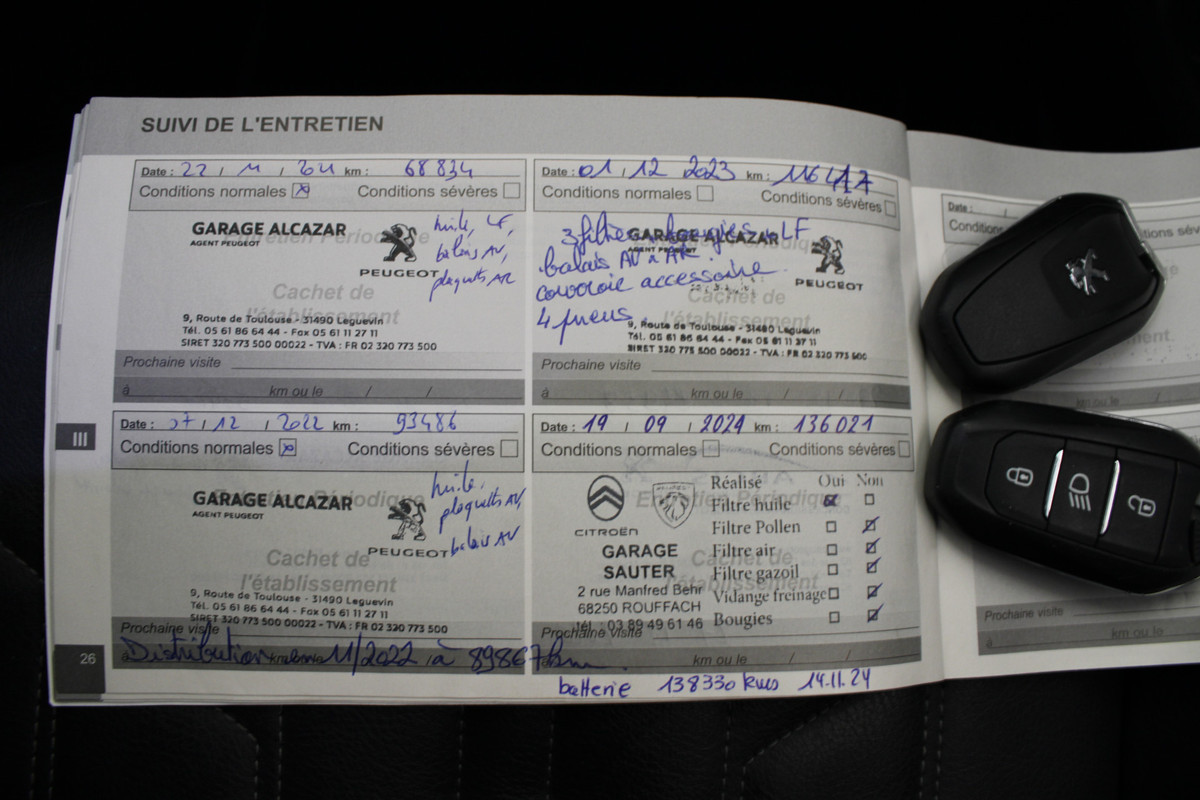 SUIVI DE L'ENTRETIEN
Date : 22 / 11 / km : 68834
Conditions normales Conditions sévères
GARAGE ALCAZAR
AGENT PEUGEOT
PEUGEOT
huile, LF,
balais AV,
plaquets AR
Entretien Périodique
Cachet de
l'établissement
9, Route de Toulouse - 31490 Leguevin
Tél. 05 61 86 64 44 - Fax 05 61 11 27 11
SIRET 320 773 500 00022 - TVA : FR 02 320 773 500
Prochaine visite
à km ou le / /
Date : 01 / 12 2023 km : 116417
Conditions normales Conditions sévères
3 filtres, bougies, LF
GARAGE ALCAZAR
AGENT PEUGEOT
balais AV + AR
courroie accessoire
4 pneus
PEUGEOT
Cachet de
l'établissement
9, Route de Toulouse - 31490 Leguevin
Tél. 05 61 86 64 44 - Fax 05 61 11 27 11
SIRET 320 773 500 00022 - TVA : FR 02 320 773 500
Prochaine visite
à km ou le / /
III
Date : 07 / 12 / 2022 km : 93486
Conditions normales Conditions sévères
GARAGE ALCAZAR
AGENT PEUGEOT
PEUGEOT
huile,
plaquets AV,
balais AV
Entretien Périodique
Cachet de
l'établissement
9, Route de Toulouse - 31490 Leguevin
Tél. 05 61 86 64 44 - Fax 05 61 11 27 11
SIRET 320 773 500 00022 - TVA : FR 02 320 773 500
Prochaine visite
Distribution 11/2022 à 89867 km.
26
Date : 19 / 09 / 2024 km : 136021
Conditions normales Conditions sévères
CITROËN
GARAGE
SAUTER
2 rue Manfred Behr
68250 ROUFFACH
Tél. : 03 89 49 61 46
Réalisé Oui Non
Filtre huile
Filtre Pollen
Filtre air
Filtre gazoil
Vidange freinage
Bougies
Entretien Périodique
Cachet de
l'établissement
Prochaine visite
km ou le / /
batterie 138330 kms 14.11.24
Date :
Conditions normales
Prochaine visite
à